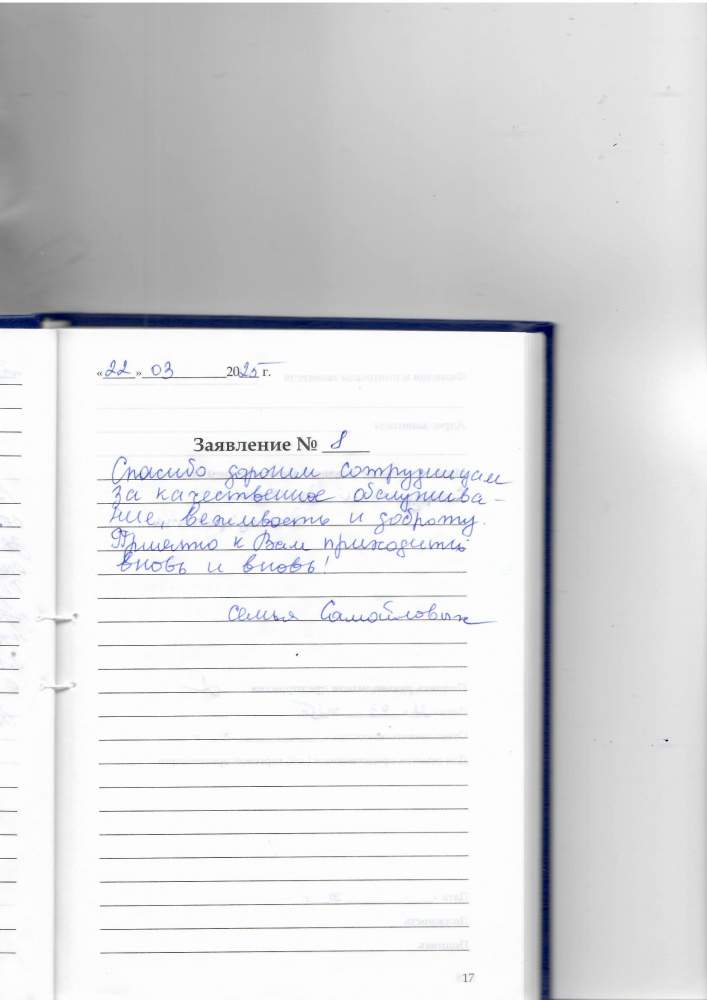 «22» 03 2025 г.
Заявление № 8
Спасибо дорогим сотрудницам
за качественное обслужива-
ние, вежливость и доброту.
Приятно к Вам приходить
вновь и вновь!
семья Самойловых
17